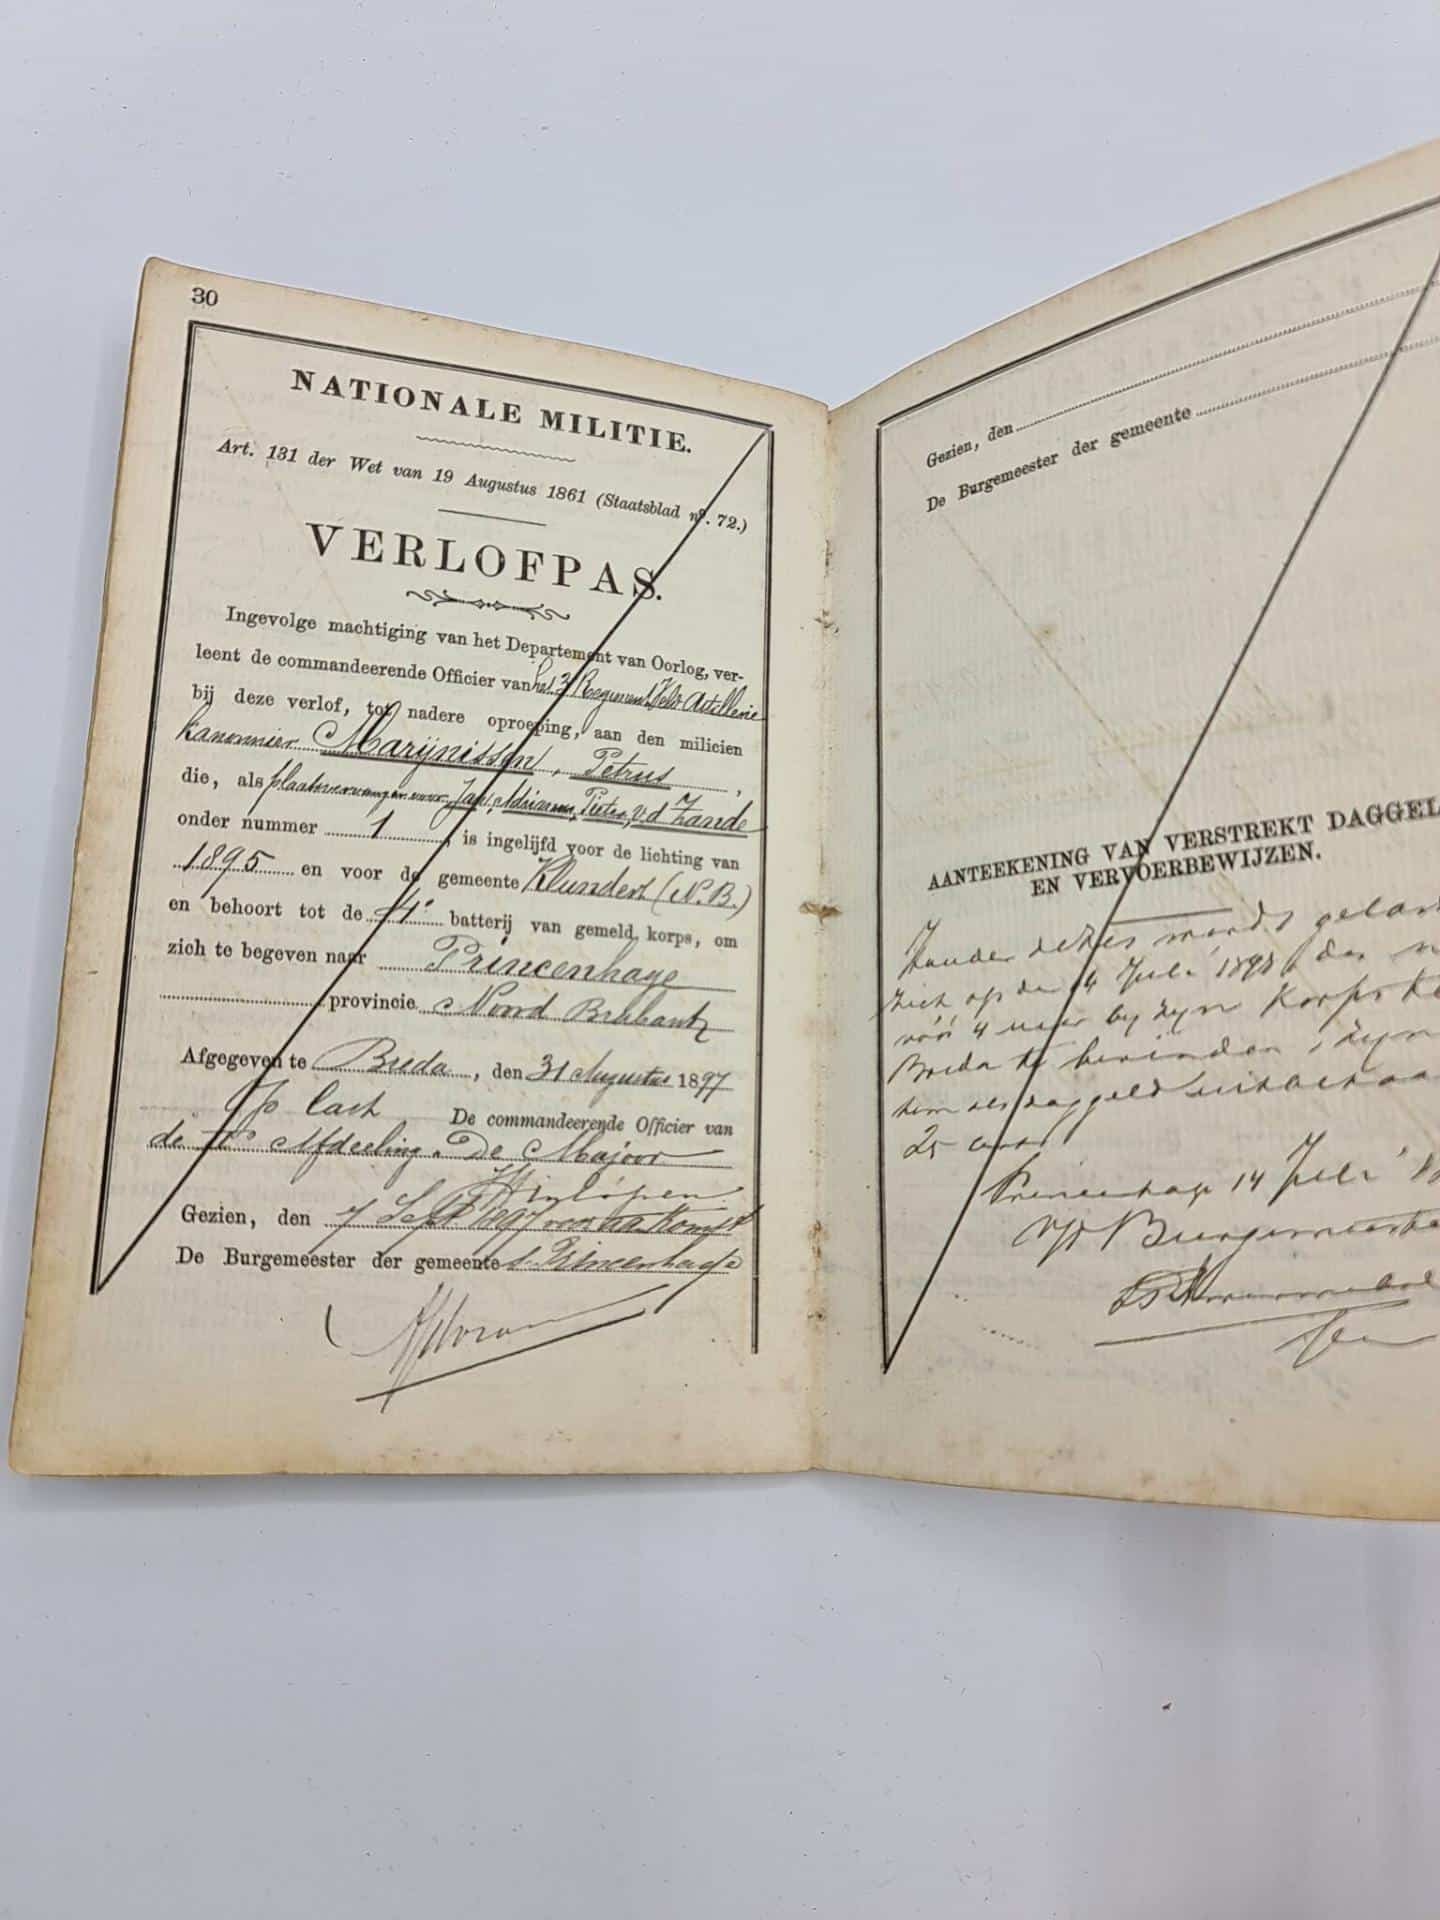 30
NATIONALE MILITIE.
Art. 131 der Wet van 19 Augustus 1861 (Staatsblad no. 72.)
VERLOFPAS.
Ingevolge machtiging van het Departement van Oorlog, ver-
leent de commandeerende Officier van het 3e Regiment Veld Artillerie
bij deze verlof, tot nadere oproeping, aan den milicien
kanonnier Marijnissen, Petrus,
die, als plaatsvervanger voor Jan, Adriaan, Pieter, v.d. Zande
onder nummer 1, is ingelijfd voor de lichting van
1895 en voor de gemeente Klundert (N.B.)
en behoort tot de 4e batterij van gemeld korps, om
zich te begeven naar Princenhage
provincie Noord Brabant
Afgegeven te Breda, den 31 Augustus 1897
Op last De commandeerende Officier van
de Afdeeling. De Majoor
Gezien, den 7 Sept 1897 voor aankomst
De Burgemeester der gemeente Princenhage
Gezien, den
De Burgemeester der gemeente
AANTEEKENING VAN VERSTREKT DAGGEL
EN VERVOERBEWIJZEN.
Houder dezes wordt gelast
zich op den 14 Juli 1898 des
vóór 4 uur bij zijn Korps te
Breda te bevinden, zijn
hem als daggeld uitbetaa
25 cent
Princenhage 14 Juli
Burgemeester